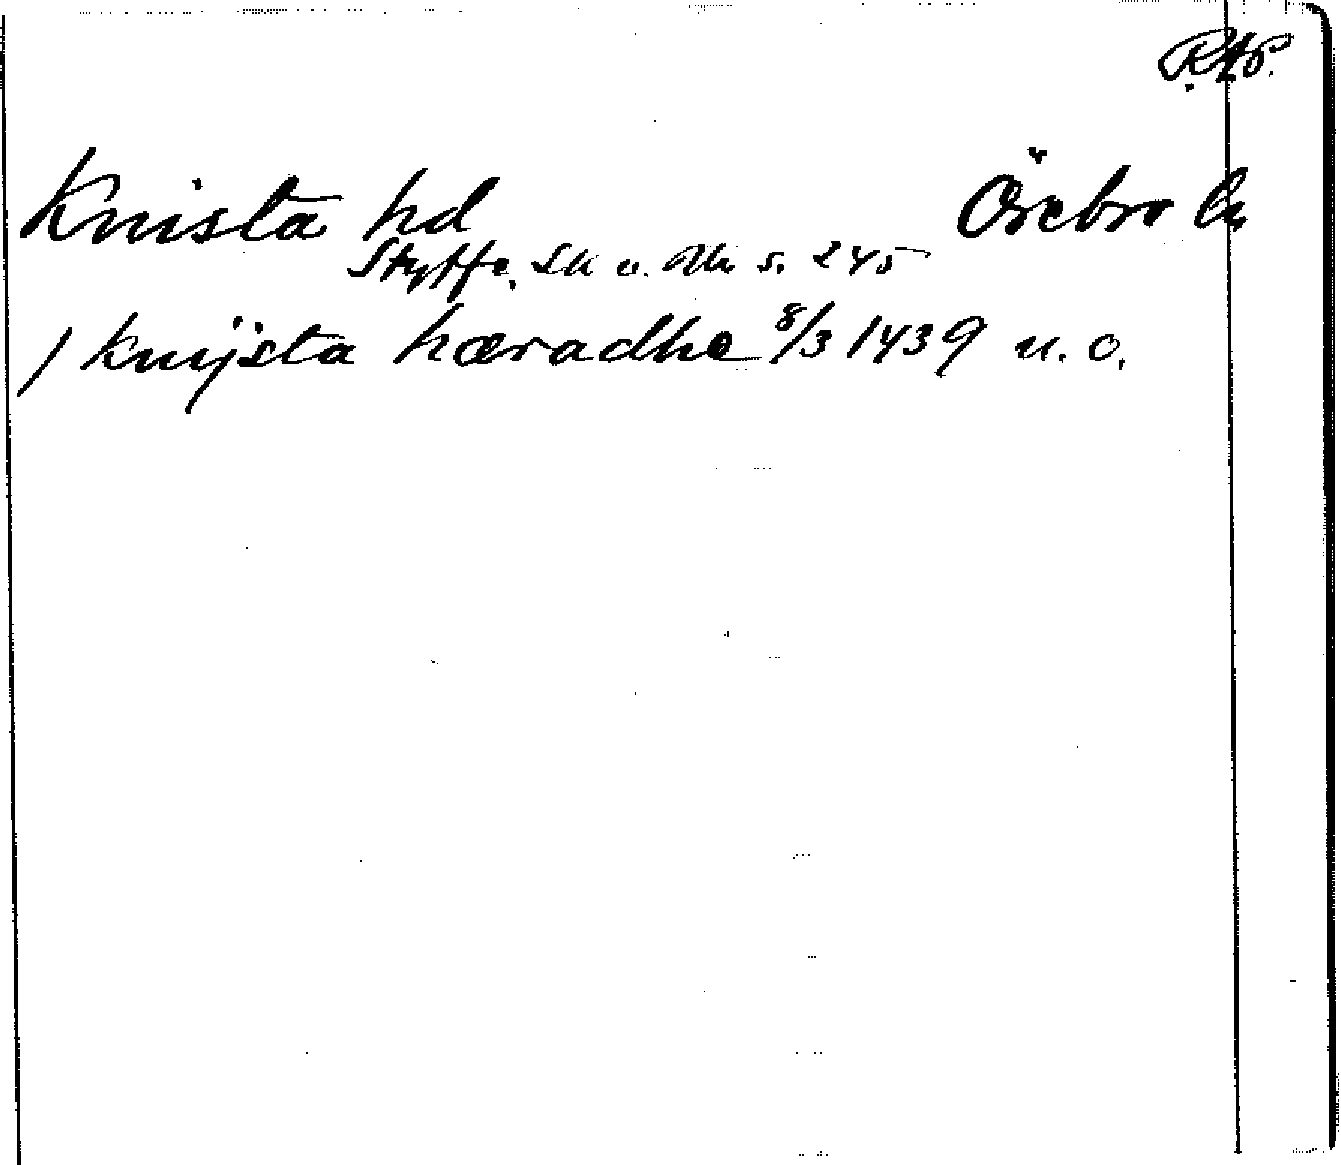 RAP.
Knista hd Örebro ln
Styffe, Sk u. Un s. 245
/ knijsta hæradhe 8/3 1439 u. o.